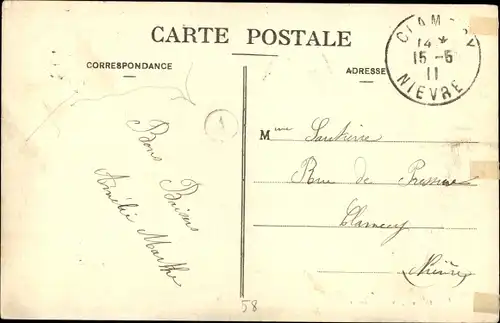 CARTE POSTALE
CORRESPONDANCE
ADRESSE
CLAMECY
14 *
15 - 5
11
NIEVRE
Bons Baisers
Amélie Marthe
Mme
Rue de
Clamecy
(Nièvre)
58